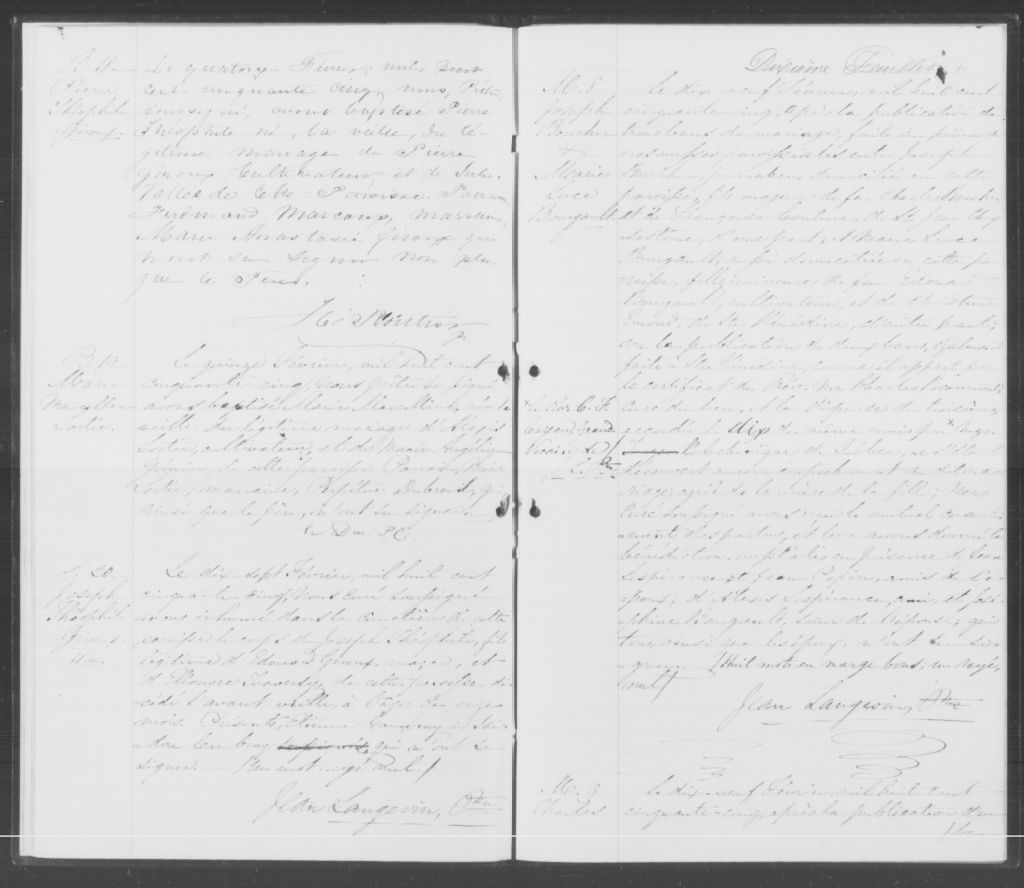 B. 18.
Pierre
Théophile
Giroux
Le quatorze Février, mil huit
cent cinquante cinq, nous, Prêtre
soussigné, avons baptisé Pierre
Théophile né, la veille, du lé-
gitime mariage de Pierre
Giroux Cultivateur et de
Vallée de cette Paroisse. Parrain,
Ferdinand Marcoux, marraine,
Marie Anastasie Giroux qui
n'ont su signer non plus
que le Père.
B. 19.
Marie
Marcelline
Le quinze Février, mil huit cent
cinquante-cinq, nous prêtre soussigné
avons baptisé Marie Marcelline, née la
veille du légitime mariage d'Alexis
cultivateur, et de Marie Angélique
de cette paroisse. Parrain,
marraine, qui
ainsi que le père, n'ont su signer.
S. 20.
Joseph
Théophile
Giroux
11 m.
Le dix-sept Février, mil huit cent
cinquante-cinq, nous curé soussigné
avons inhumé dans le cimetière de cette
paroisse le corps de Joseph Théophile, fils
légitime d'Edouard Giroux, et
d'Eléonore Traversy, de cette paroisse dé-
cédé l'avant veille, à l'âge de onze
mois. Présents, Etienne
qui n'ont su
signer. /Un mot rayé nul./
Jean Langevin, Ptre
Deuxième Feuillet
M. 8
Joseph
Boucher
&
Marie
Luce
Bourgault
Le dix-neuf Février, mil huit cent
cinquante-cinq, après la publication de
trois bans de mariage, faite au prône de
nos messes paroissiales entre Joseph
Boucher, journalier, domicilié en cette
paroisse, fils majeur de feu Charles Boucher,
et de Françoise Couture, de St Jean Chry-
sostome, d'une part; et Marie Luce
Bourgault, aussi domiciliée en cette pa-
roisse, fille mineure de feu Edouard
Bourgault, cultivateur, et de Christine
Emond, de Ste Hénédine, d'autre part;
vu la publication de deux bans, également
faite à Ste Hénédine, comme il appert par
le certificat du Rév. Mr Charles
curé du lieu, et la dispense du troisième
accordé le dix du même mois par × Mgr
× le Rév. C. F.
Cazeau, Grand
Vicaire de /
l'Archevêque de Québec, ne s'étant
découvert aucun empêchement au dit ma-
riage; agréé de la mère de la fille; Nous
curé soussigné avons reçu le mutuel consente-
ment des parties, et leur avons donné la
bénédiction nuptiale en présence de Jean
Lespérance et Jean Pepin, amis de l'é-
poux; d'Alexis Lespérance, ami, et José-
phine Bourgault, sœur de l'épouse; qui
tous, ainsi que les époux, n'ont su si-
gner. /Huit mots en marge bons; un rayé,
nul/
Jean Langevin, Ptre
M. 9
Charles
Le dix-neuf Février, mil huit cent
cinquante-cinq, après la publication d'un
/ban